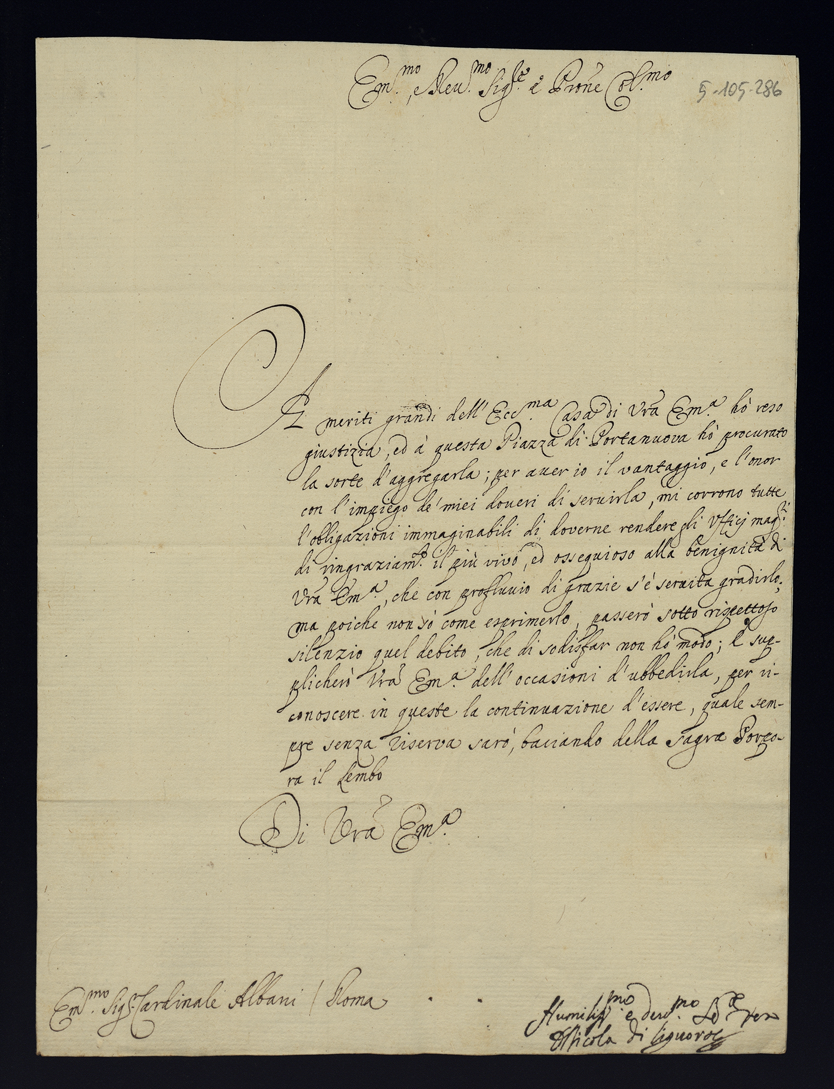 Em.mo, e Reu.mo Sig.re e Prone Col.mo
5-105-286
A meriti grandi dell'Ecc.ma Casa di Vra Em.a hò reso
giustizia, ed à questa Piazza di Portanuova hò procurato
la sorte d'aggregarla; per auer io il vantaggio, e l'onor
con l'impiego de' miei doueri di seruirla, mi corrono tutte
l'obligazioni immaginabili di doverne rendere gli Vfficj mag.ri
di ringraziam.to il più vivo, ed ossequioso alla benignità di
Vra Em.a, che con profluuio di grazie s'è seruita gradirlo;
ma poiche non sò come esprimerlo, passerò sotto rispettoso
silenzio quel debito, che di sodisfar non hò modo; E sup-
plicherò Vra Em.a dell'occasioni d'ubbedirla, per ri-
conoscere in queste la continuazione d'essere, quale sem-
pre senza riserva sarò, baciando della sagra Porpo-
ra il Lembo
Di Vra Em.a
Em.mo Sig.r Cardinale Albani / Roma
Humiliss.mo e deu.mo Ser.re vero
Nicola di Liguoro